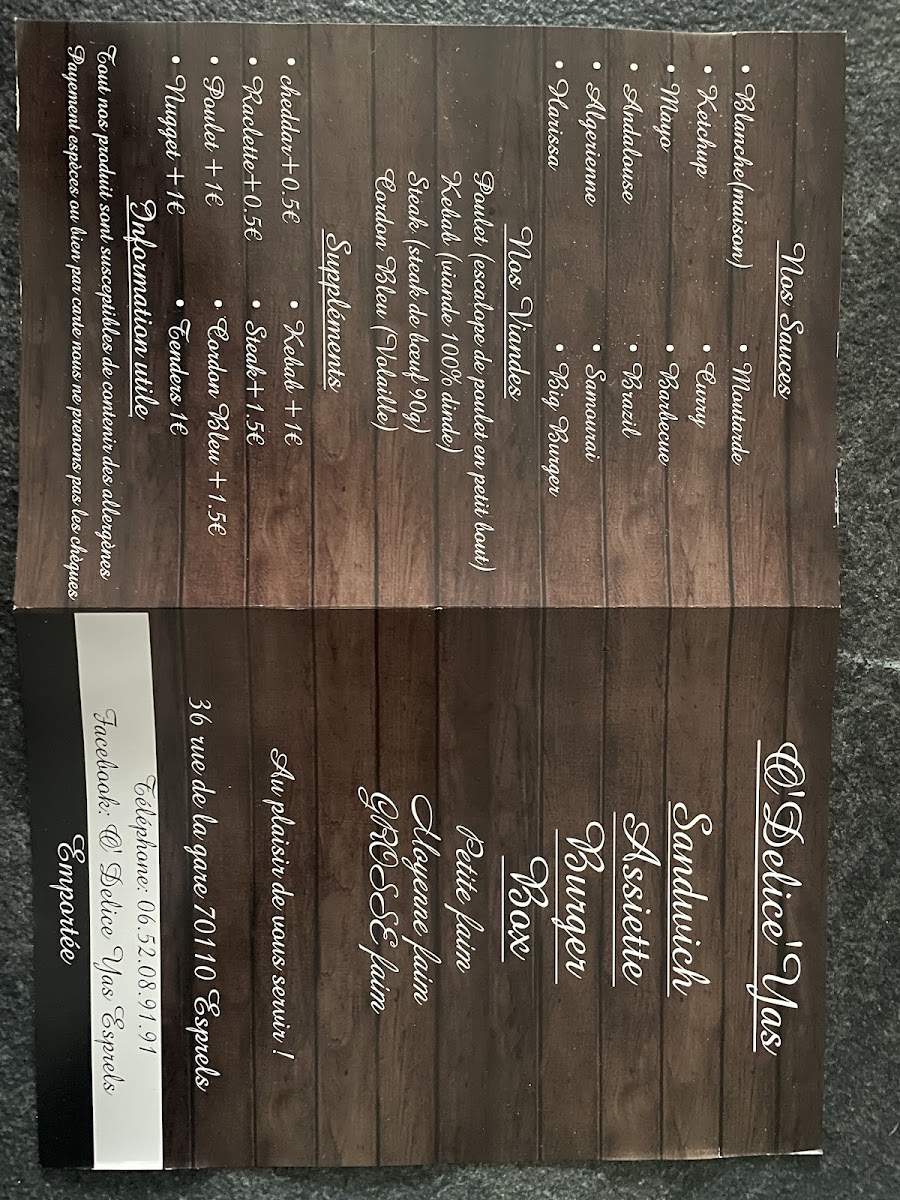 Nos Sauces
• Blanche(maison) • Moutarde
• Ketchup • Curry
• Mayo • Barbecue
• Andalouse • Brezil
• Algerienne • Samourai
• Harissa • Big Burger
Nos Viandes
Poulet (escalope de poulet en petit bout)
Kebab (viande 100% dinde)
Steak (steak de bœuf 90g)
Cordon Bleu (Volaille)
Suppléments
• cheddar+0.5€ • Kebab +1€
• Raclette+0.5€ • Steak+1.5€
• Poulet +1€ • Cordon Bleu +1.5€
• Nugget +1€ • Tenders 1€
Information utile
Tout nos produit sont susceptibles de contenir des allergènes
Payement espèces ou bien par carte nous ne prenons pas les chèques
O'Delice'Yas
Sandwich
Assiette
Burger
Box
Petite faim
Moyenne faim
GROSSE faim
Au plaisir de vous servir !
36 rue de la gare 70110 Esprels
Téléphone: 06.52.08.91.91
Facebook: O' Delice Yas Esprels
Emportée